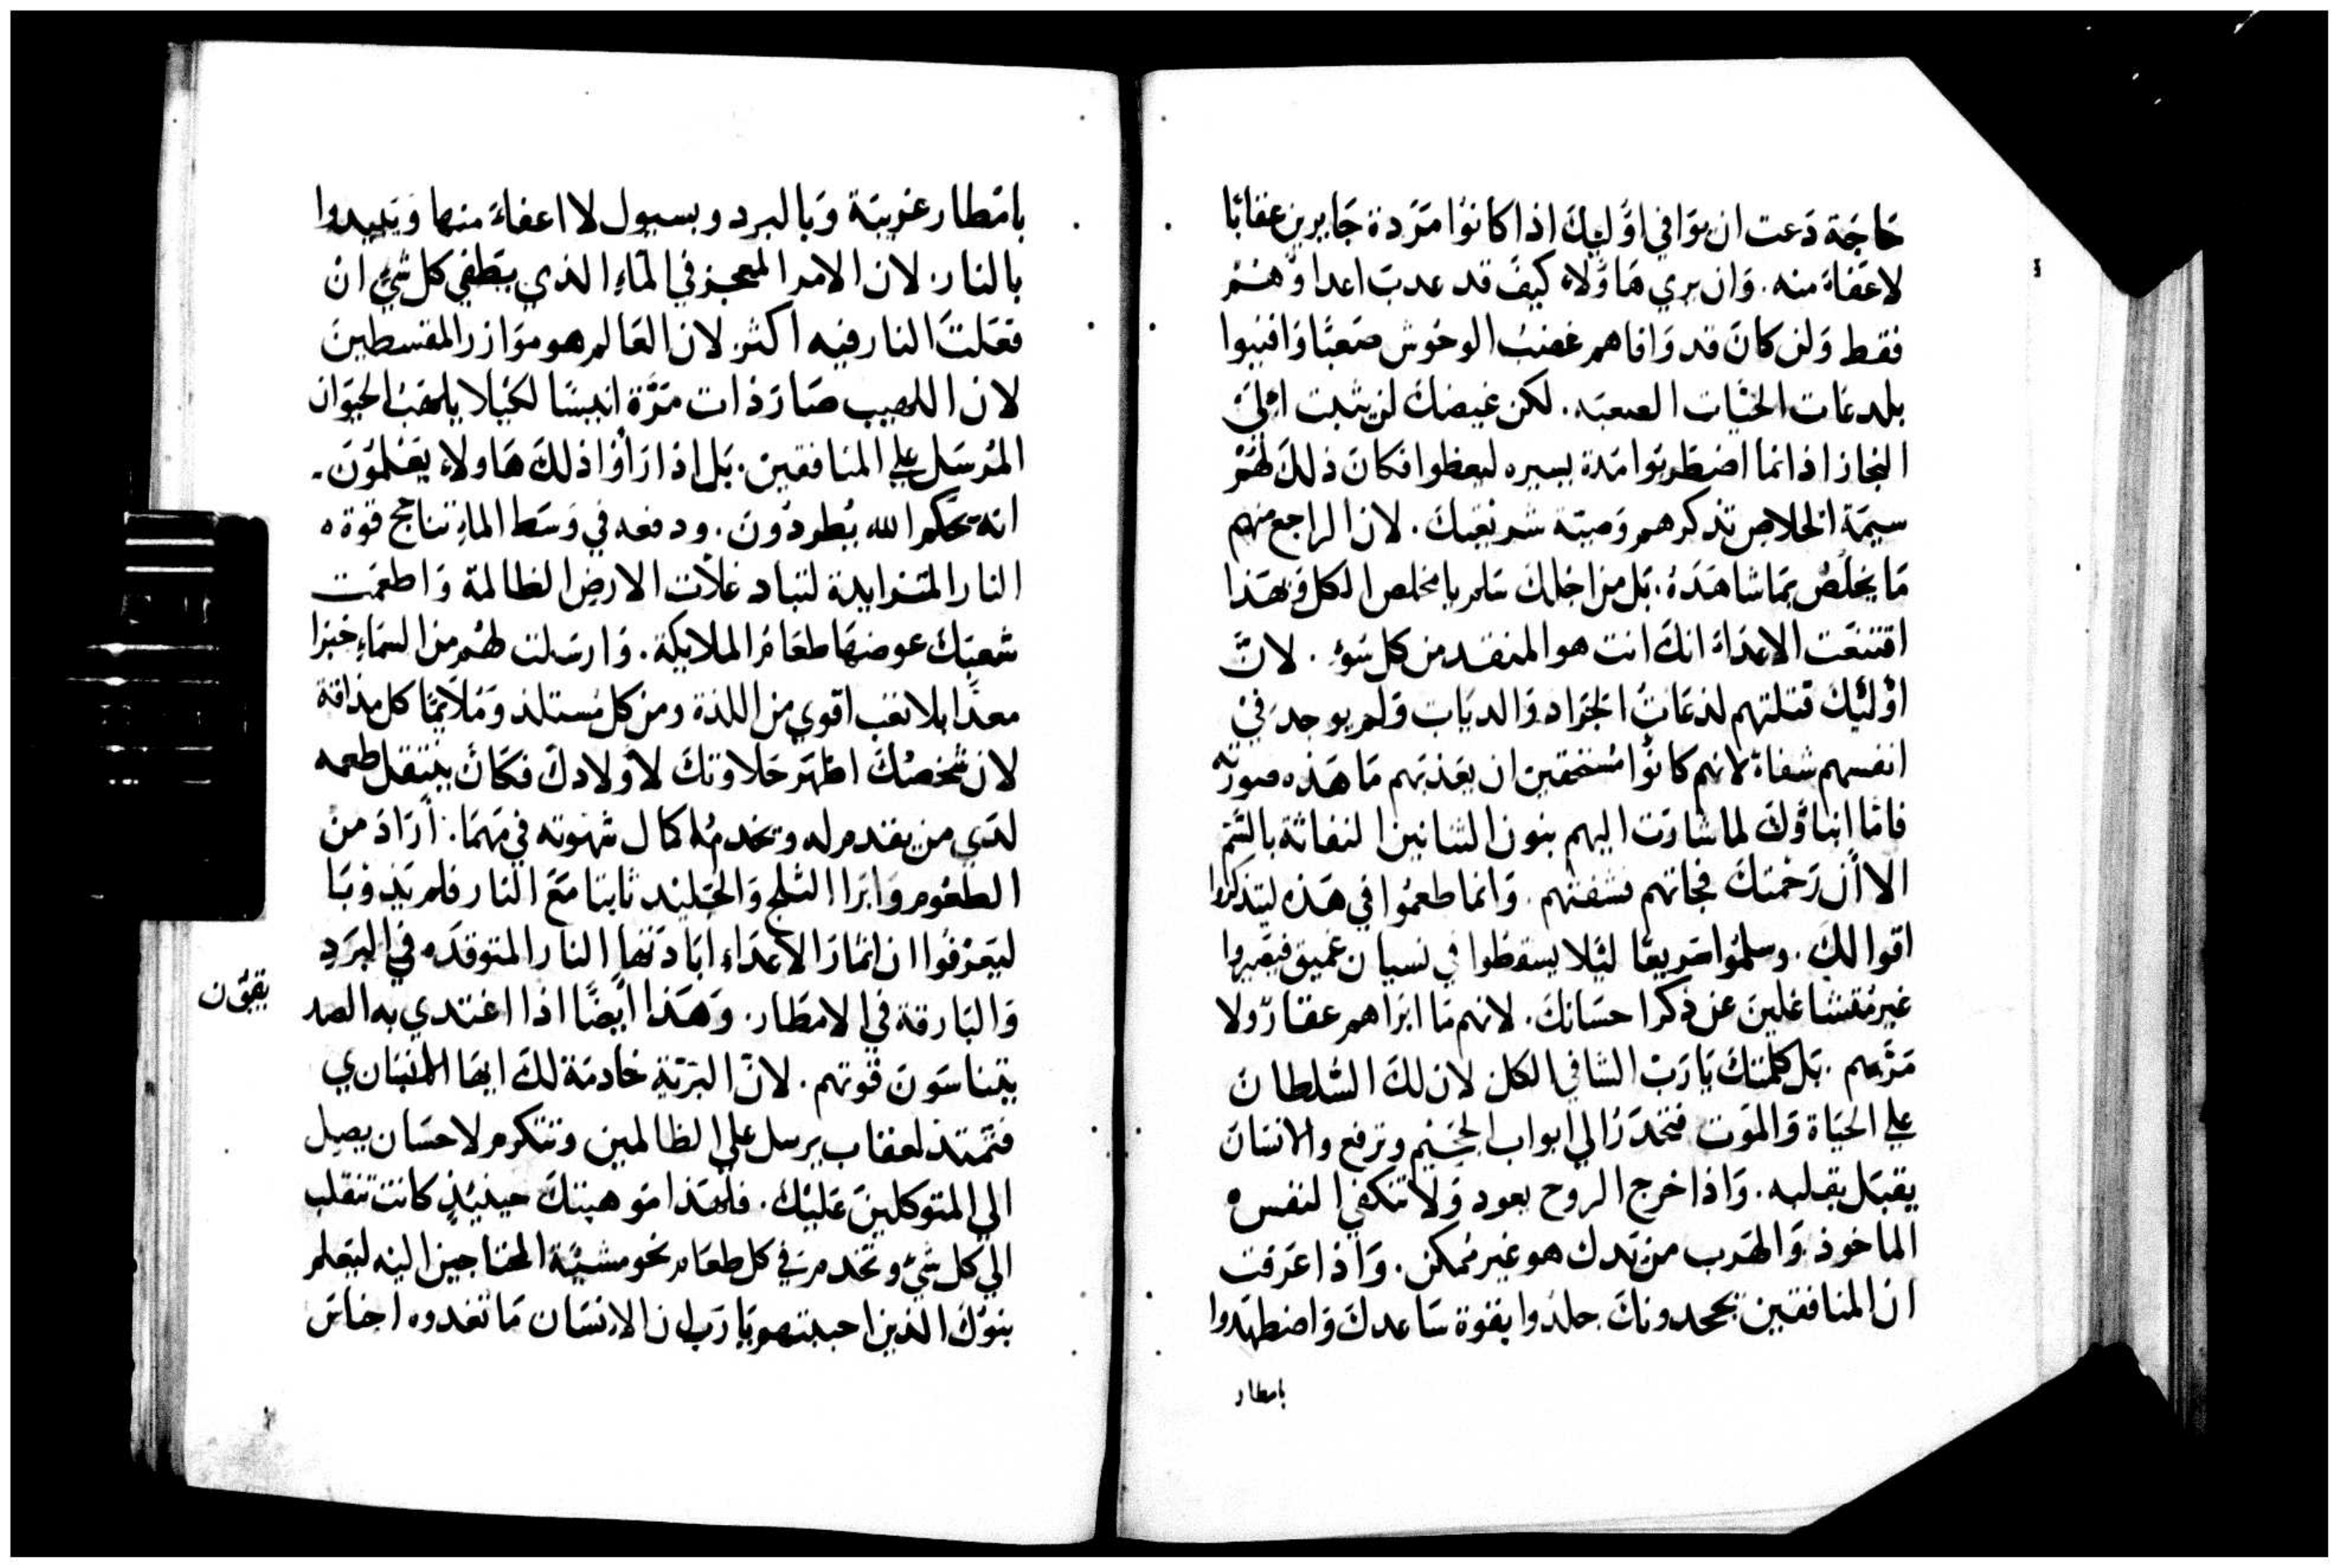 حَاجَة دَعت ان يوَافي اوُليِكَ اذا كانوُا مَرَدة جَابرين عقابًا
لاعَفاءَ منه. وَان يري هَاوَلاءِ كيفَ قد عدبَ اعداوَهُمْ
فقط وَلئن كانَ قد وَافاهم غضبُ الوحُوش صَعبًا وَافنيوا
بلدغات الحيَّات الصعبَه. لكن غيضكَ لن يثبت اليَ
النجاز اذ انما اضطَربوا مَدة يسيره ليعظوا فكانَ ذلكَ لهُمْ
سيمَة الخلاص تذكرهم وَصيَة شريعَتكَ. لان الراجع منهم
مَا يخلُصْ بمَا شاهَدَهُ. بَل من اجلكَ سَلم يا مخلص الكل وَبهَذا
اقتنعَت الاعدَاءَ انكَ انت هو المنقد من كل سُوءِ. لانَّ
اوُليِكَ قتلتهم لدغَاتُ الجَرَاد وَالدبَابِ وَلم يوجدَ في
انفسهم شفاءً لانهم كانوُا مُستحقين ان يعَذبَهم مَا هَذه صورَتهُ
فامَّا ابناوَكَ لما شارَت اليهم بنون التنانين النفاثة بالسَّم
الا أن رَحْمتكَ فجاتهم فشفتهم. وَانما طعمُوا في هَذه ليتذكروا
اقوالكَ. وسلمُوا سَريعًا ليَلا يسقطوا في نسيان غميق فيصَيروا
غيرمُتشاغلينَ عن ذكر احسَانكَ. لانهم مَا ابرَاهم عقارٌ ولا
مَرَّهم. بَل كلمتكَ يَارَبْ الشافي الكل لان لكَ السُلطان
علي الحَيَاة وَالموَت فتحدَرُ الي ابواب الجحَيْم وترفع والانسَان
يقبَل بقلبه. وَاذا خرج الروح يعود وَلا تنكفي النفس
الماخوذه وَالهَرب من يَدك هو غير ممكن. وَاذا عَرفت
ان المنافقين يجحدونكَ جلدوا بقوة سَاعدكَ وَاضطهَدوا
بامطار
بامَطار غريبَة وَبا لبرد وبسيول لااعفاءَ منها وَيَبيدوا
بالنار. لان الامر المعجز في الماءِ الذي يطفي كل شيْءِ انْ
فعَلتَ النار فيه اكثر. لان العَالم هو موَازر المقسطينَ
لان اللهيب صَارَ ذات مَرَّة انيسًا لكيْلا يلهَبُ الحيَوان
المُرسَل علي المنافقينَ. بَل اذا رَأوَا ذلكَ هَاولاءِ يعَلموُنَ.
انه بحَكم الله يُطردُونَ. ودفعه في وَسَط الماءِ تتاجج قوة
النار المتزايدة لتباد غلات الارض الظالمة وَاطعمَت
شعبَكَ عوضهَا طعَامُ الملايكة. وَارسَلت لهُم من السَماءِ خبزا
معدًا بلا تعَب اقوي من اللذة ومن كل مُستلذ وَمُلايمًا كل مذاقة
لان شخصُكَ اظهَر حَلاوتكَ لاوَلادكَ فكاَنَ ينتقل طعمه
لدَي من يقدم له ويخدمُه كمال شهوته في مَهمَا. أرَادَ منْ
الطعُوم وَابرَا الثلج وَالجَليْد ثابتا مَعَ النار فلم يَذوبَا
ليَعرْفوُا ان اثمارَ الاعدَاءِ ابَادَتهَا النار المتوقدَه في البرَدِ
وَالبَارقة في الامطَار. وَهَذا ايضًا اذا اغتدي به الصد
يقيوُن
يتناسَونَ قوتهم. لانَّ البَريَّة خَادمَة لكَ ايهَا الباري
فتمَتد لعقاب يرسل علي الظالمين وتتكرم لاحسَان يصل
الي المتوكلينَ عَليْكَ. فلهَذا موَهبتكَ حينيذٍ كانتَ تنقلب
الي كل شيْ وتخدم في كل طعَام نحو مشيئة المحتَاجين اليْه ليَعلم
بنوُكَ الذين احببتهم يَارَب ان الانسَان مَا تغدوه اجناسَ